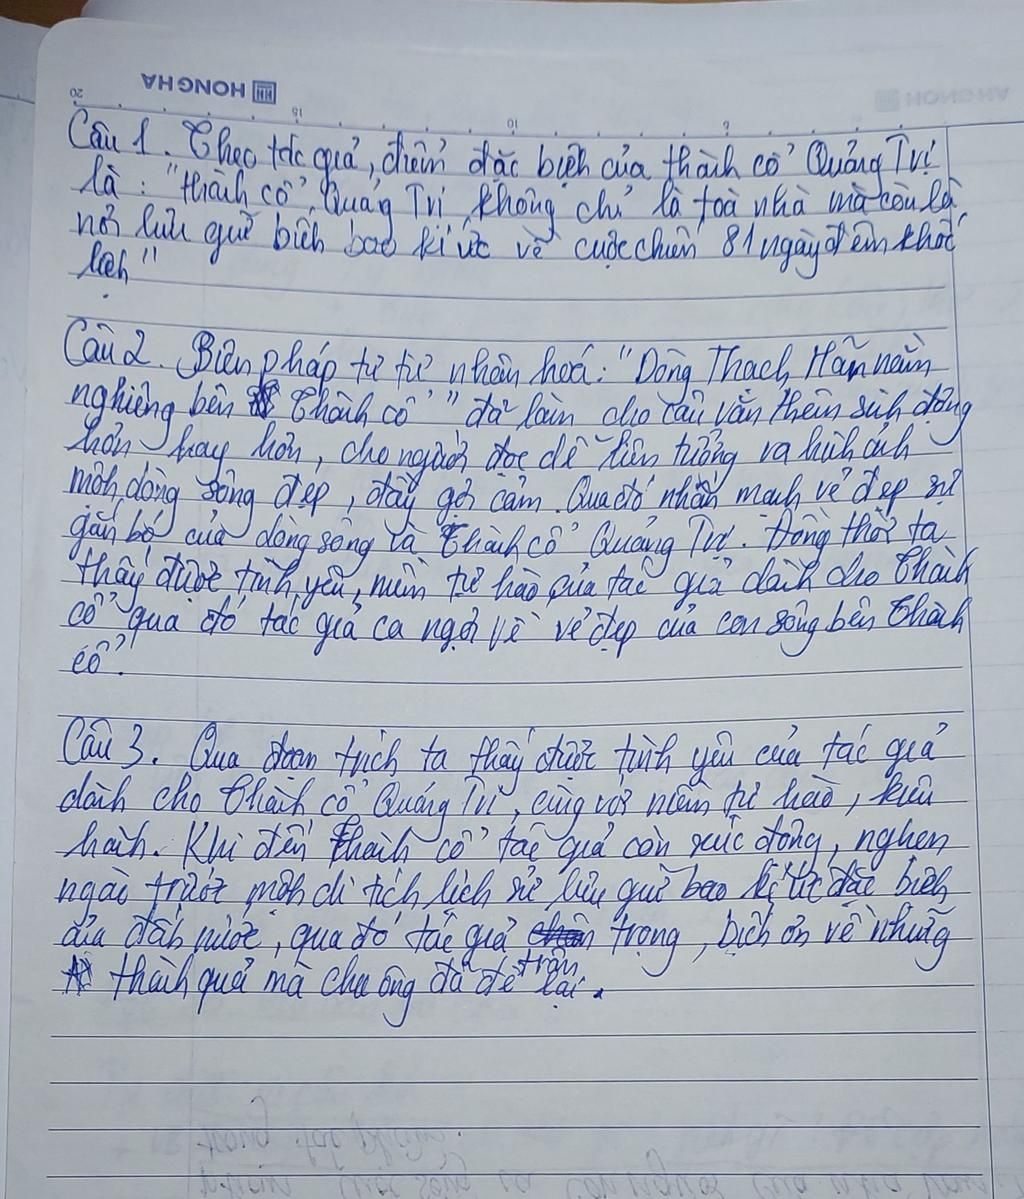 HONG HA
20 15 10
Câu 1. Theo tác giả, điểm đặc biệt của thành cổ Quảng Trị
là: "thành cổ Quảng Trị không chỉ là toà nhà mà còn là
nơi lưu giữ biết bao kí ức về cuộc chiến 81 ngày đêm khốc
liệt"
Câu 2. Biện pháp tu từ nhân hoá: "Dòng Thạch Hãn nằm
nghiêng bên Thành cổ" đã làm cho câu văn thêm sinh động
hơn hay hơn, cho người đọc dễ liên tưởng ra hình ảnh
một dòng sông đẹp, đầy gợi cảm. Qua đó nhấn mạnh vẻ đẹp sự
gắn bó của dòng sông và Thành cổ Quảng Trị. Đồng thời ta
thấy được tình yêu, niềm tự hào của tác giả dành cho Thành
cổ qua đó tác giả ca ngợi về vẻ đẹp của con sông bên Thành
cổ.
Câu 3. Qua đoạn trích ta thấy được tình yêu của tác giả
dành cho Thành cổ Quảng Trị, cùng với niềm tự hào, kiêu
hãnh. Khi đến Thành cổ tác giả còn xúc động, nghẹn
ngào trước một di tích lịch sử lưu giữ bao kí ức đặc biệt
của đất nước, qua đó tác giả trân trọng, biết ơn về những
thành quả mà cha ông đã để lại.